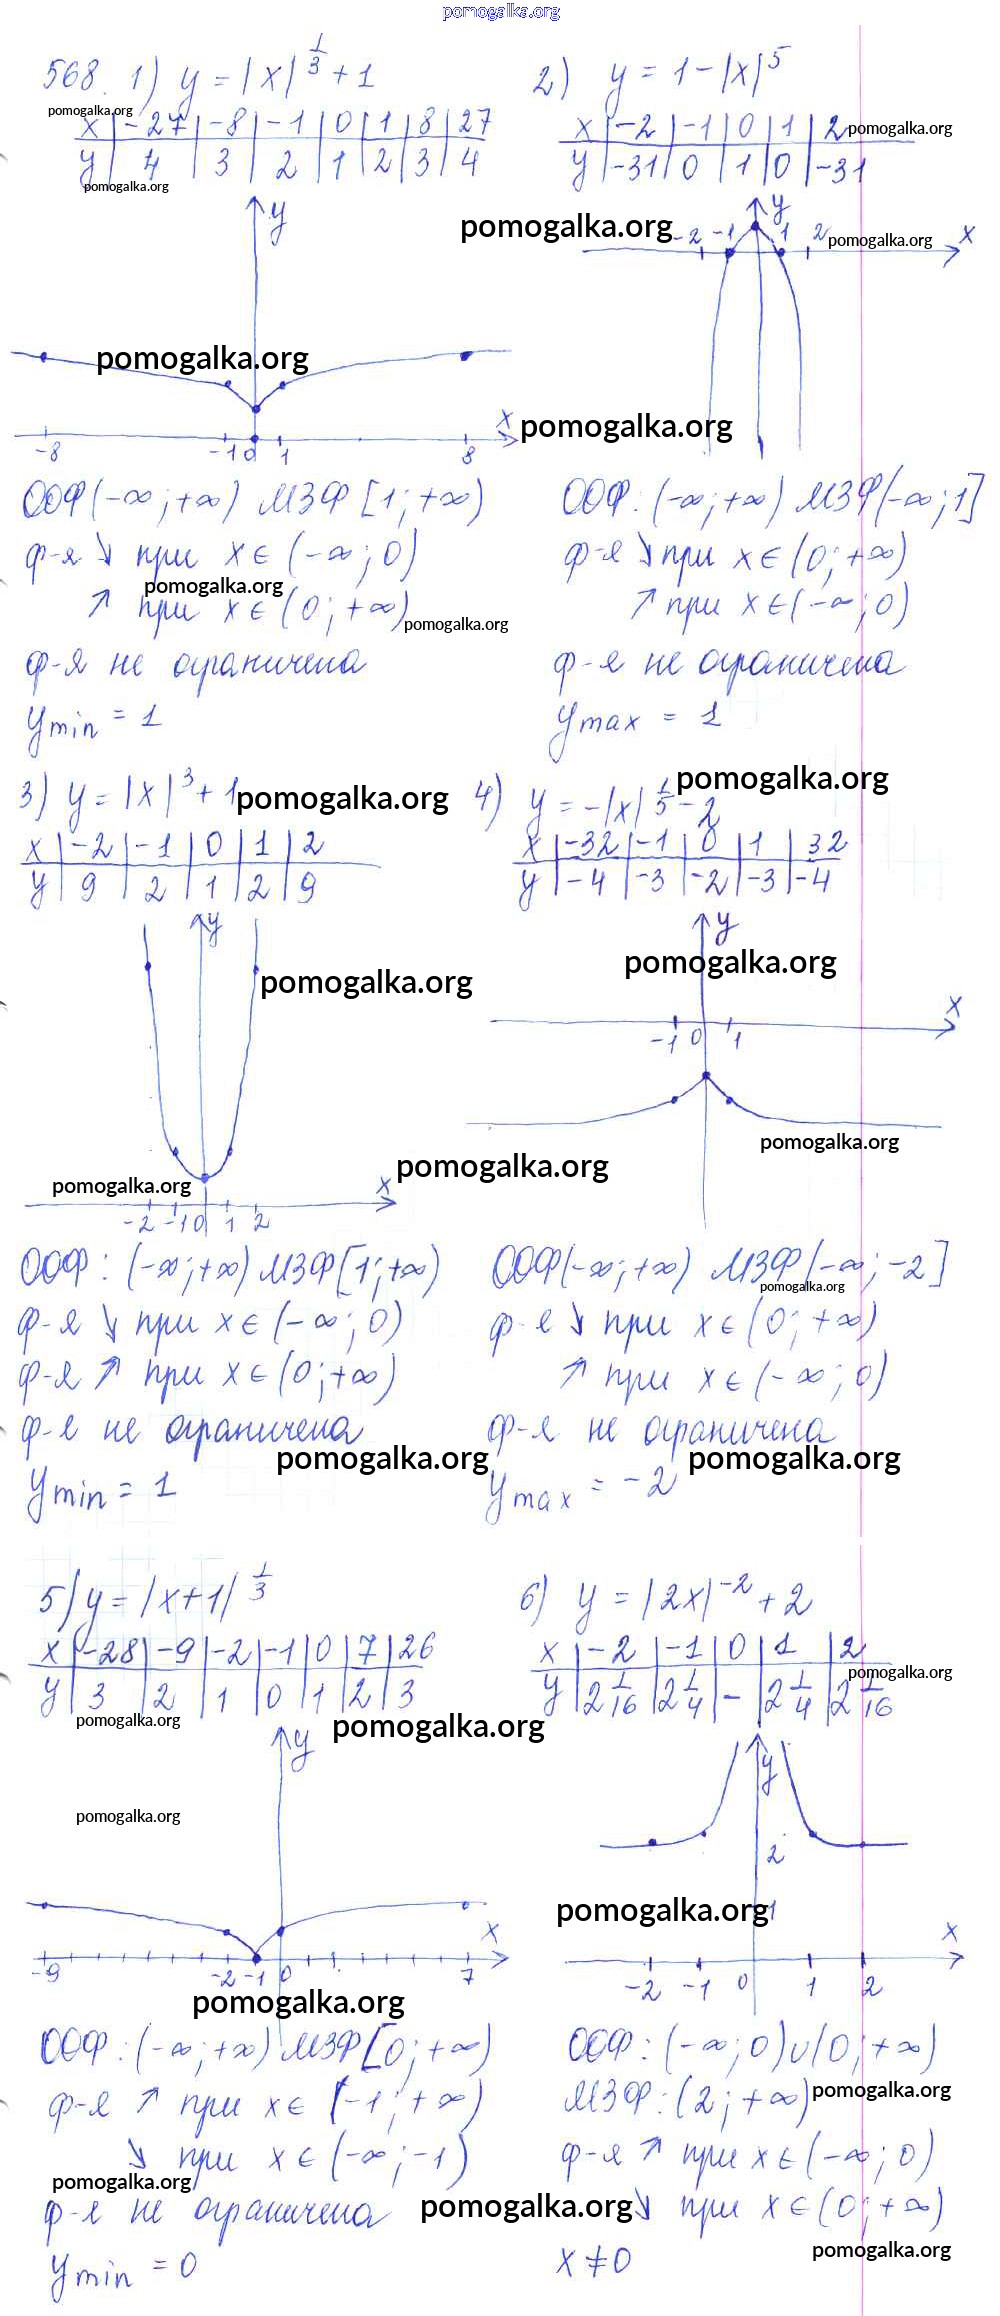 pomogalka.org
568. 1) y = |x|^{1/3} + 1
pomogalka.org
x | -27 | -8 | -1 | 0 | 1 | 8 | 27
y | 4 | 3 | 2 | 1 | 2 | 3 | 4
pomogalka.org
y
pomogalka.org
x
-8 -1 0 1 8
ООФ (-∞; +∞) МЗФ [1; +∞)
ф-я ↘ при x ∈ (-∞; 0)
pomogalka.org
↗ при x ∈ (0; +∞)
pomogalka.org
ф-я не ограничена
y min = 1
2) y = 1 - |x|^5
x | -2 | -1 | 0 | 1 | 2
pomogalka.org
y | -31 | 0 | 1 | 0 | -31
pomogalka.org
y
-2 -1 1 2
pomogalka.org
x
pomogalka.org
ООФ: (-∞; +∞) МЗФ (-∞; 1]
ф-я ↘ при x ∈ (0; +∞)
↗ при x ∈ (-∞; 0)
ф-я не ограничена
y max = 1
3) y = |x|^3 + 1
pomogalka.org
x | -2 | -1 | 0 | 1 | 2
y | 9 | 2 | 1 | 2 | 9
y
pomogalka.org
pomogalka.org
x
-2 -1 0 1 2
ООФ: (-∞; +∞) МЗФ [1; +∞)
ф-я ↘ при x ∈ (-∞; 0)
ф-я ↗ при x ∈ (0; +∞)
ф-я не ограничена
pomogalka.org
y min = 1
pomogalka.org
4) y = -|x|^{1/5} - 2
x | -32 | -1 | 0 | 1 | 32
y | -4 | -3 | -2 | -3 | -4
y
pomogalka.org
x
-1 0 1
pomogalka.org
pomogalka.org
ООФ (-∞; +∞) МЗФ (-∞; -2]
pomogalka.org
ф-я ↘ при x ∈ (0; +∞)
↗ при x ∈ (-∞; 0)
ф-я не ограничена
pomogalka.org
y max = -2
5) y = |x+1|^{1/3}
x | -28 | -9 | -2 | -1 | 0 | 7 | 26
y | 3 | 2 | 1 | 0 | 1 | 2 | 3
pomogalka.org
pomogalka.org
y
pomogalka.org
x
-9 -2 -1 0 7
pomogalka.org
ООФ: (-∞; +∞) МЗФ [0; +∞)
ф-я ↗ при x ∈ (-1; +∞)
↘ при x ∈ (-∞; -1)
pomogalka.org
ф-я не ограничена
y min = 0
6) y = |2x|^{-2} + 2
x | -2 | -1 | 0 | 1 | 2
pomogalka.org
y | 2 1/16 | 2 1/4 | - | 2 1/4 | 2 1/16
y
2
pomogalka.org
1
x
-2 -1 0 1 2
ООФ: (-∞; 0) ∪ (0; +∞)
МЗФ: (2; +∞)
pomogalka.org
ф-я ↗ при x ∈ (-∞; 0)
pomogalka.org
↘ при x ∈ (0; +∞)
pomogalka.org
x ≠ 0